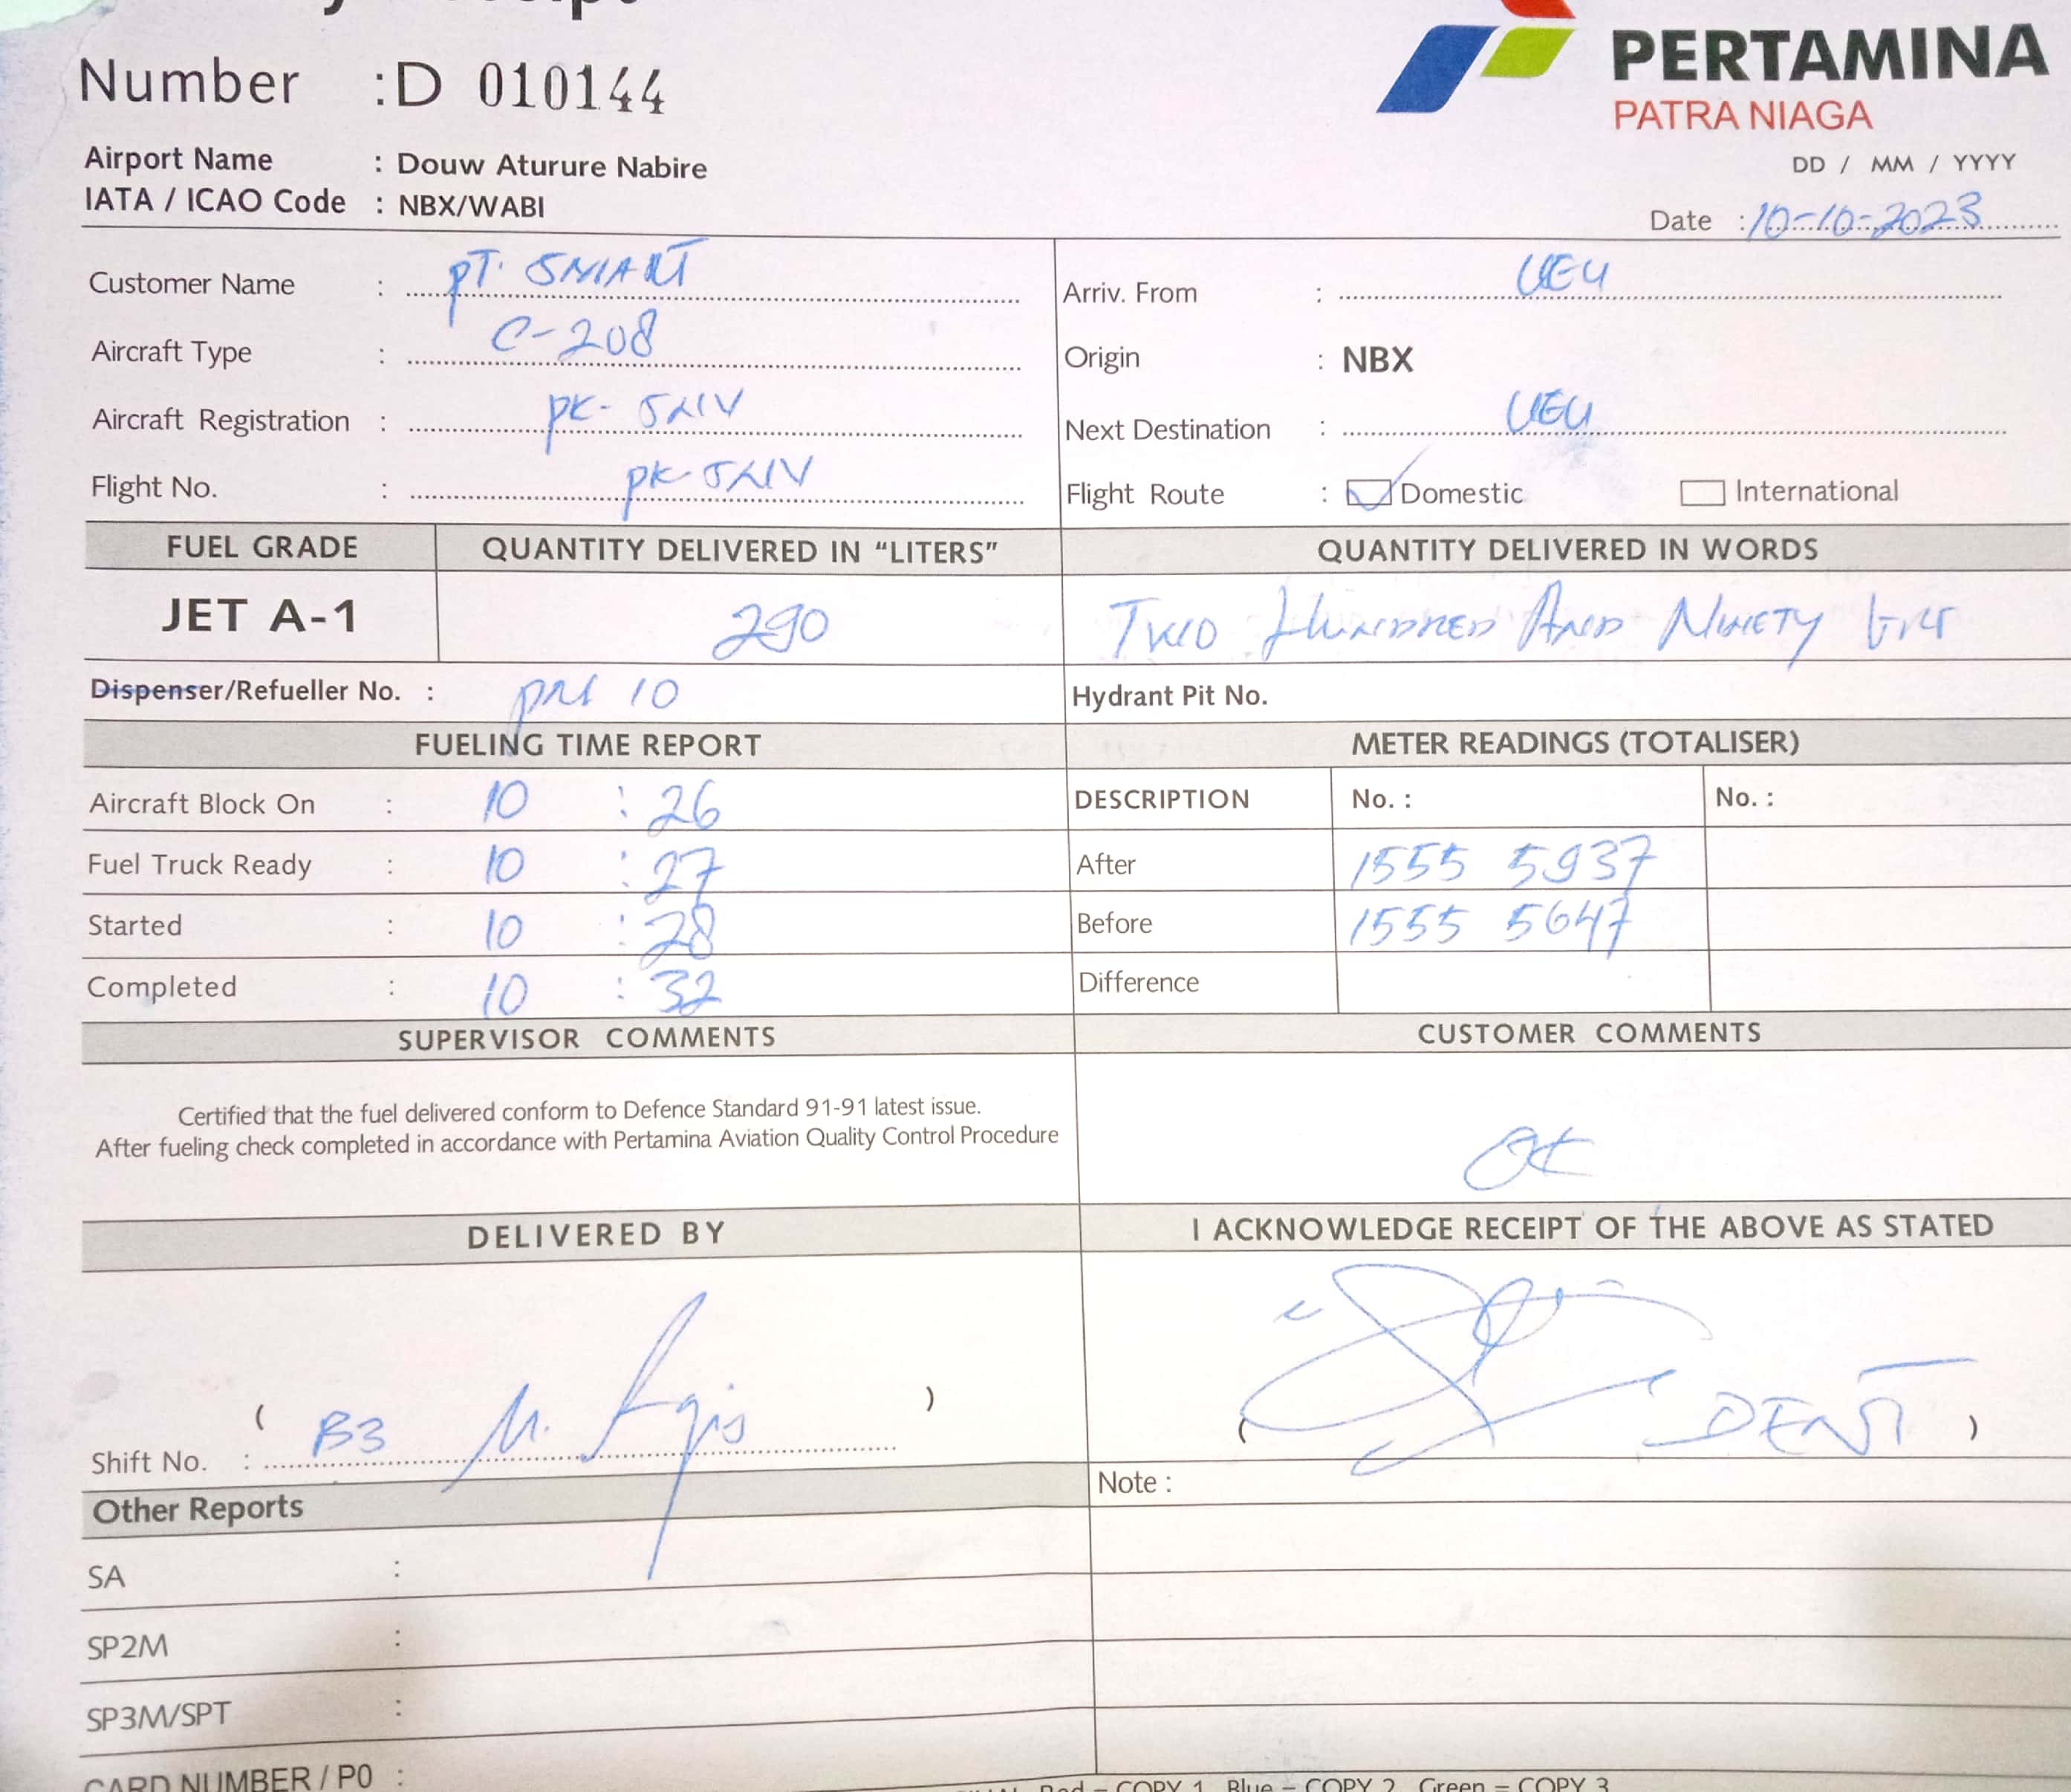 Number : D 010144
PERTAMINA
PATRA NIAGA
Airport Name : Douw Aturure Nabire
IATA / ICAO Code : NBX/WABI
DD / MM / YYYY
Date : 10-10-2023
Customer Name : PT. SMART
Arriv. From : UEU
Aircraft Type : C-208
Origin : NBX
Aircraft Registration :
Next Destination : UEU
Flight No. :
Flight Route : Domestic International
FUEL GRADE QUANTITY DELIVERED IN “LITERS” QUANTITY DELIVERED IN WORDS
JET A-1 290 Two Hundred And Ninety
Dispenser/Refueller No. : 10
Hydrant Pit No.
FUELING TIME REPORT METER READINGS (TOTALISER)
Aircraft Block On : 10 : 26 DESCRIPTION No. : No. :
Fuel Truck Ready : 10 : 27 After 1555 5937
Started : 10 : 28 Before 1555 5647
Completed : 10 : 32 Difference
SUPERVISOR COMMENTS CUSTOMER COMMENTS
Certified that the fuel delivered conform to Defence Standard 91-91 latest issue.
After fueling check completed in accordance with Pertamina Aviation Quality Control Procedure
OK
DELIVERED BY I ACKNOWLEDGE RECEIPT OF THE ABOVE AS STATED
( B3 M. Agis ) ( )
Shift No. :
Note :
Other Reports
SA :
SP2M :
SP3M/SPT :
CARD NUMBER / P0 :
Red = COPY 1 Blue = COPY 2 Green = COPY 3